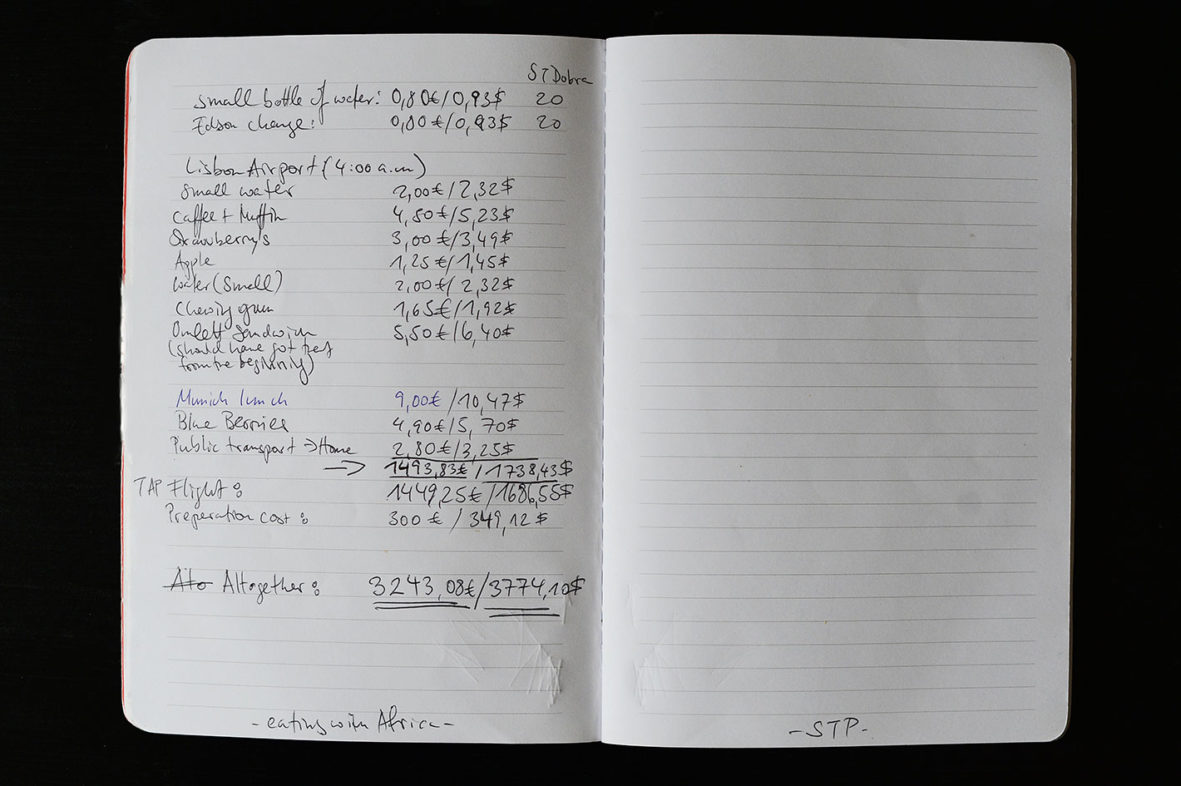 STDobra
small bottle of water: 0,80€/0,93$ 20
Edson change: 0,80€/0,93$ 20
Lisbon Airport (4:00 a.m)
small water 2,00€/2,32$
Caffee + Muffin 4,50€/5,23$
Strawberry's 3,00€/3,49$
Apple 1,25€/1,45$
Water (small) 2,00€/2,32$
Chewing gum 1,65€/1,92$
Omlett Sandwich 5,50€/6,40$
(should have got
from the beginning)
Munich lunch 9,00€/10,47$
Blue Berries 4,90€/5,70$
Public transport → Home 2,80€/3,25$
→ 1493,83€/1738,43$
TAP Flight: 1449,25€/1686,55$
Preperation cost: 300€/349,12$
Alto Altogether: 3243,08€/3774,10$
- eating with Africa -
- STP -